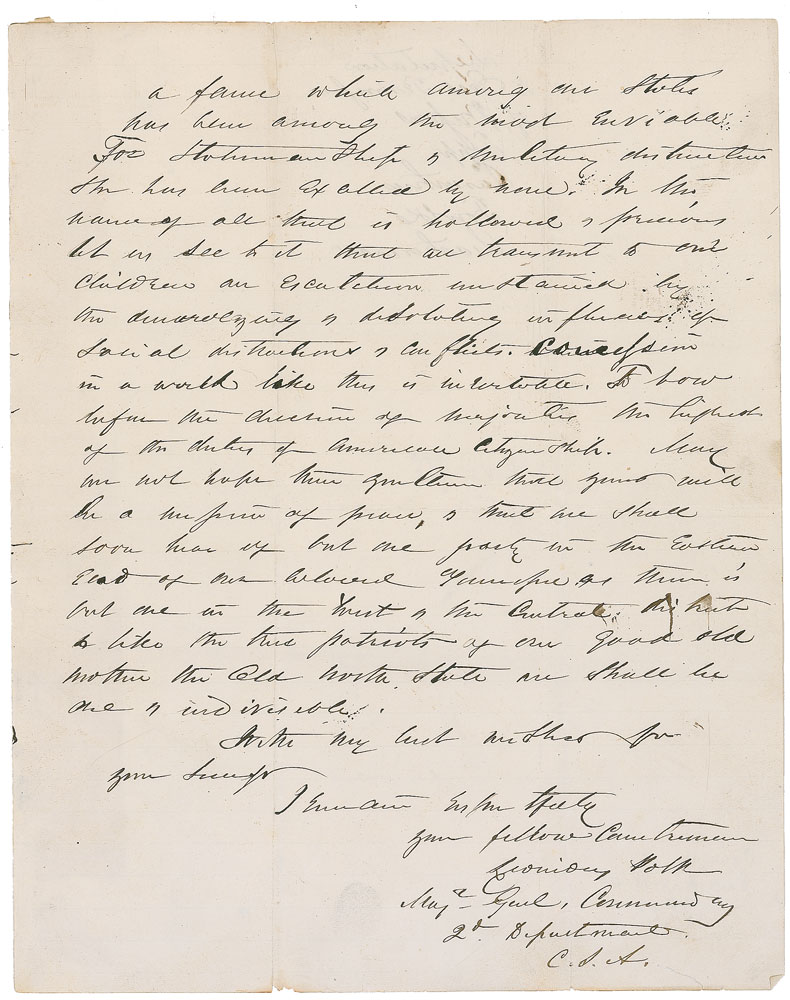 a fame which among our States
has been among the most enviable.
For Statesmanship & military distinction
She has been Excelled by none. In the
name of all that is hallowed & precious
let us see to it that we transmit to our
Children an Escutcheon unstained by
the demoralizing & desolating influences of
Social distractions & conflicts. Concession
in a world like this is inevitable. To bow
before the decision of majorities the highest
of the duties of American Citizenship. May
we not hope then gentlemen that yours will
be a mission of peace, & that we shall
soon hear of but one party in the Eastern
End of our beloved Tennessee as there is
but one in the West & the Central district
& like the true patriots of our good old
mother the Old North State we shall be
one & indivisible.
With my best wishes for
your Success
I remain respectfully
your fellow Countryman
Leonidas Polk
Majr Genl, Commanding
2d Department.
C. S. A.